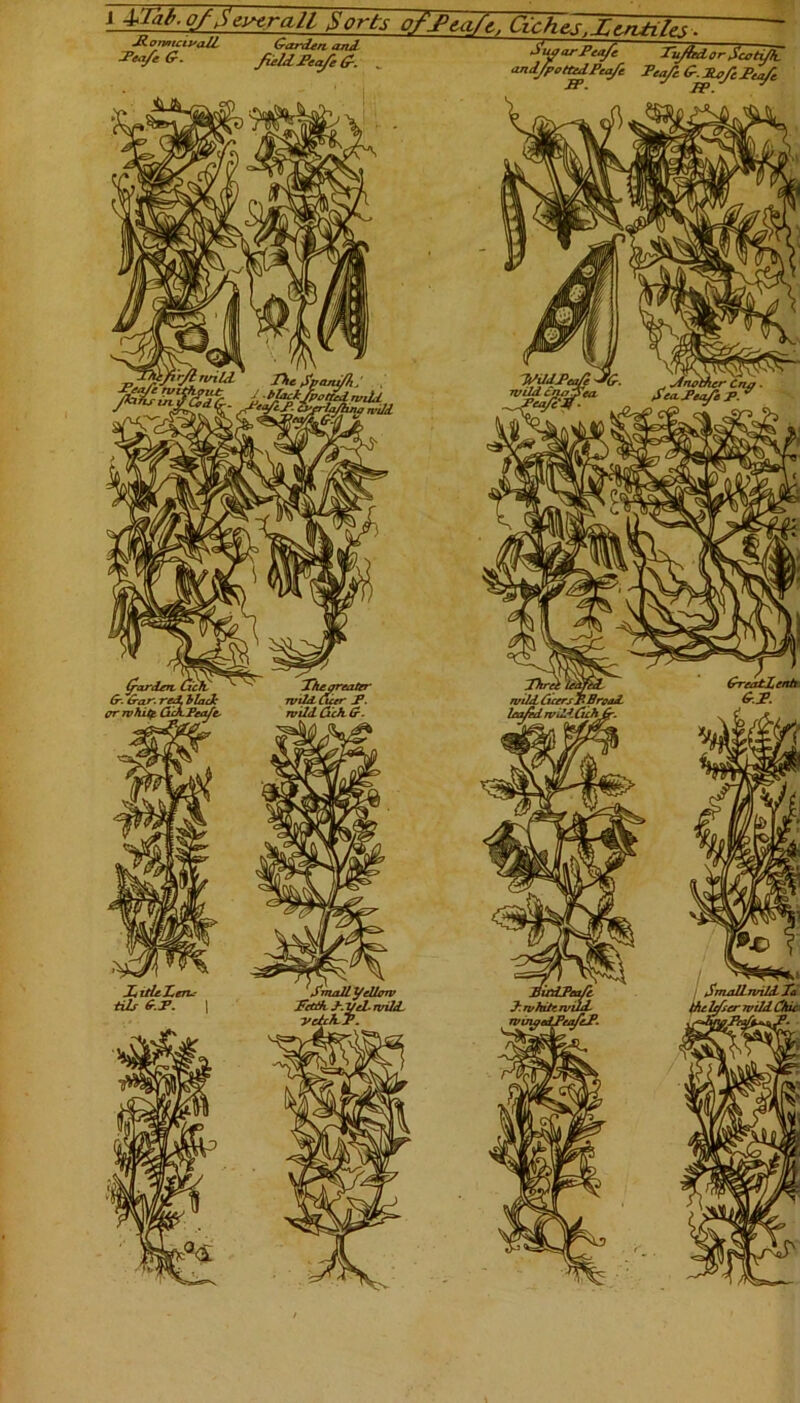 1 4 Tab. of Severall Sorts of Pease, Ciches, Lentiles.
Romncivall
Pease G.
Garden and
field Pease G.
Sugar Pease
and spotted Pease
P.
Tufted or Scotish
Pease G. Rose Pease
P.
The first wild
Pease without
skins in ye Cod G.
The Spanish
black spotted wild
Pease P. Everlasting wild
Pease G.
Wild Pease G.
wild Eng Sea
Pease
Another Eng.
Sea Pease P.
Garden Cich
G. Gar. red, black
or white Cich Pease
The greater
wild Cicer P.
wild Cich G.
Three leafed
wild Cicers P. Broad
leafed wild Cich G.
Great Lenti
G. P.
Litle Len-
tils G. P.
Small Yellow
Fetch J. Yel. wild
vetch P.
Bird Pease
J. white wild
winged Pease P.
Small wild La
the lesser wild Chic
ling Pease P.